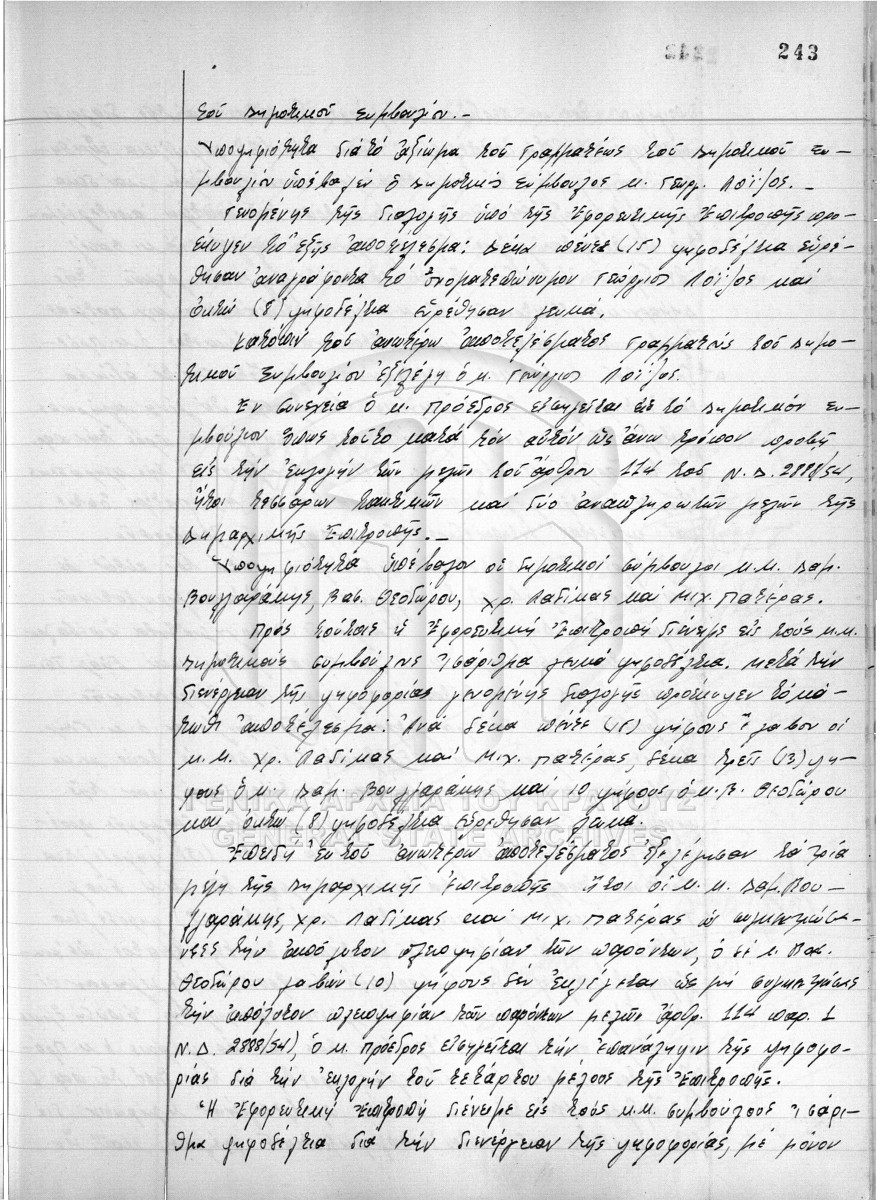 243
τοῦ Δημοτικοῦ Συμβουλίου.-
Ὑποψηφιότητα διά τό ἀξίωμα τοῦ Γραμματέως τοῦ Δημοτικοῦ Συ-
μβουλίου ὑπέβαλεν ὁ Δημοτικός Σύμβουλος κ. Γεώργ. Λοΐζος.-
Γενομένης τῆς διαλογῆς ὑπό τῆς Ἐφορευτικῆς Ἐπιτροπῆς προ-
έκυψεν τό ἑξῆς ἀποτέλεσμα: Δέκα πέντε (15) ψηφοδέλτια εὑρέ-
θησαν ἀναγράφοντα τό ὀνοματεπώνυμον Γεώργιος Λοΐζος καί
ὀκτώ (8) ψηφοδέλτια εὑρέθησαν λευκά.
Κατόπιν τοῦ ἀνωτέρω ἀποτελέσματος Γραμματεύς τοῦ Δημο-
τικοῦ Συμβουλίου ἐξελέγη ὁ κ. Γεώργιος Λοΐζος.
Ἐν συνεχεία ὁ κ. Πρόεδρος εἰσηγεῖται εἰς τό Δημοτικόν Συ-
μβούλιον ὅπως τοῦτο κατά τόν αὐτόν ὡς ἄνω τρόπον προβῇ
εἰς τήν ἐκλογήν τῶν μελῶν τοῦ ἄρθρου 114 τοῦ Ν.Δ. 2888/54,
ἤτοι τεσσάρων τακτικῶν καί δύο ἀναπληρωτῶν μελῶν τῆς
Δημαρχικῆς Ἐπιτροπῆς.-
Ὑποψηφιότητα ὑπέβαλον οἱ δημοτικοί σύμβουλοι κ.κ. Δαμ.
Βουλγαράκης, Βασ. Θεοδώρου, Χρ. Λαδίκας καί Μιχ. Πατέρας.
Πρός τοῦτο ἡ Ἐφορευτική Ἐπιτροπή διένειμε εἰς τούς κ.κ.
Δημοτικούς συμβούλους ἰσάριθμα λευκά ψηφοδέλτια. Μετά τήν
διενέργειαν τῆς ψηφοφορίας γενομένης διαλογῆς προέκυψεν τό κά-
τωθι ἀποτέλεσμα: Ἀνά δέκα πέντε (15) ψήφους ἔλαβον οἱ
κ.κ. Χρ. Λαδίκας καί Μιχ. Πατέρας, δέκα τρεῖς (13) ψή-
φους ὁ κ. Δαμ. Βουλγαράκης καί 10 ψήφους ὁ κ. Β. Θεοδώρου
καί ὀκτώ (8) ψηφοδέλτια εὑρέθησαν λευκά.
ΓΕΝΙΚΑ ΑΡΧΕΙΑ ΤΟΥ ΚΡΑΤΟΥΣ
GENERAL STATE ARCHIVES
Ἐπειδή ἐκ τοῦ ἀνωτέρω ἀποτελέσματος ἐξελέγησαν τά τρία
μέλη τῆς Δημαρχικῆς Ἐπιτροπῆς ἤτοι οἱ κ.κ. Δαμ. Βου-
λγαράκης, Χρ. Λαδίκας καί Μιχ. Πατέρας ὡς συγκεντρώσα-
ντες τήν ἀπόλυτον πλειοψηφίαν τῶν παρόντων, ὁ δέ κ. Βασ.
Θεοδώρου λαβών (10) ψήφους δέν ἐκλέγεται ὡς μή συγκεντρώσας
τήν ἀπόλυτον πλειοψηφίαν τῶν παρόντων μελῶν ἄρθρ. 114 παρ. 1
Ν.Δ. 2888/54), ὁ κ. Πρόεδρος εἰσηγεῖται τήν ἐπανάληψιν τῆς ψηφοφο-
ρίας διά τήν ἐκλογήν τοῦ τετάρτου μέλους τῆς Ἐπιτροπῆς.
Ἡ Ἐφορευτική Ἐπιτροπή διένειμε εἰς τούς κ.κ. συμβούλους ἰσάρι-
θμα ψηφοδέλτια διά τήν διενέργειαν τῆς ψηφοφορίας, μέ μόνον